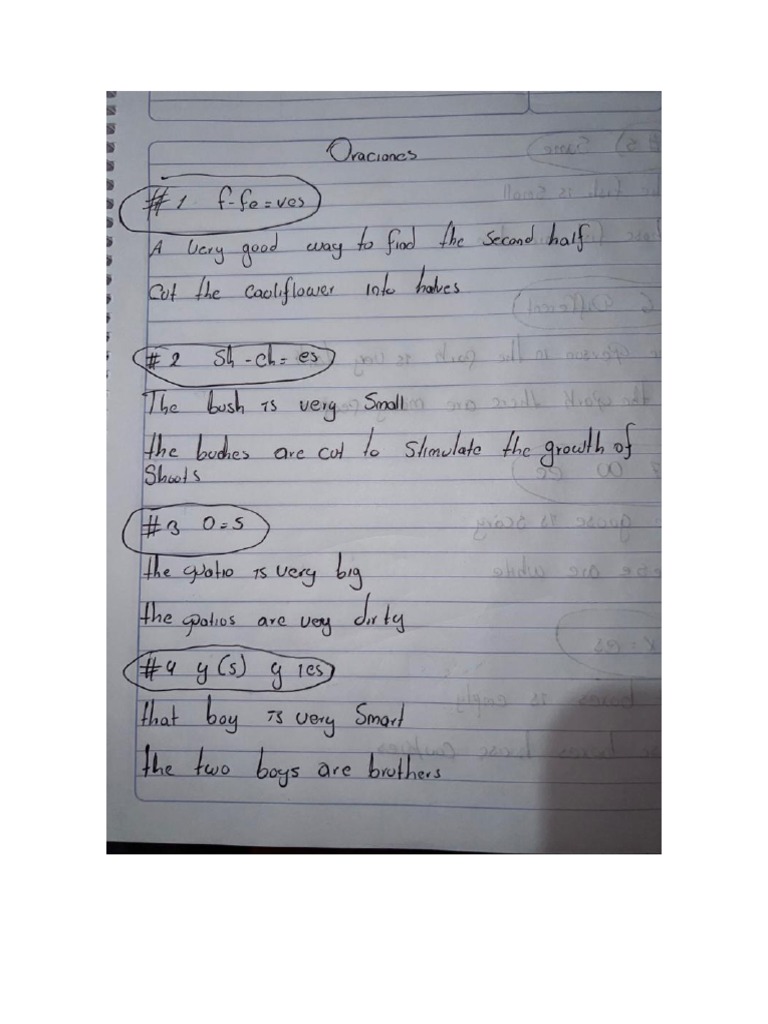 Oraciones
#1 f-fe=ves
A very good way to find the second half
Cut the cauliflower into halves
#2 Sh-ch=es
The bush is very Small
the bushes are cut to Stimulate the growth of
Shoots
#3 O=s
the patio is very big
the patios are very dirty
#4 y(s) y ies
that boy is very Smart
the two boys are brothers